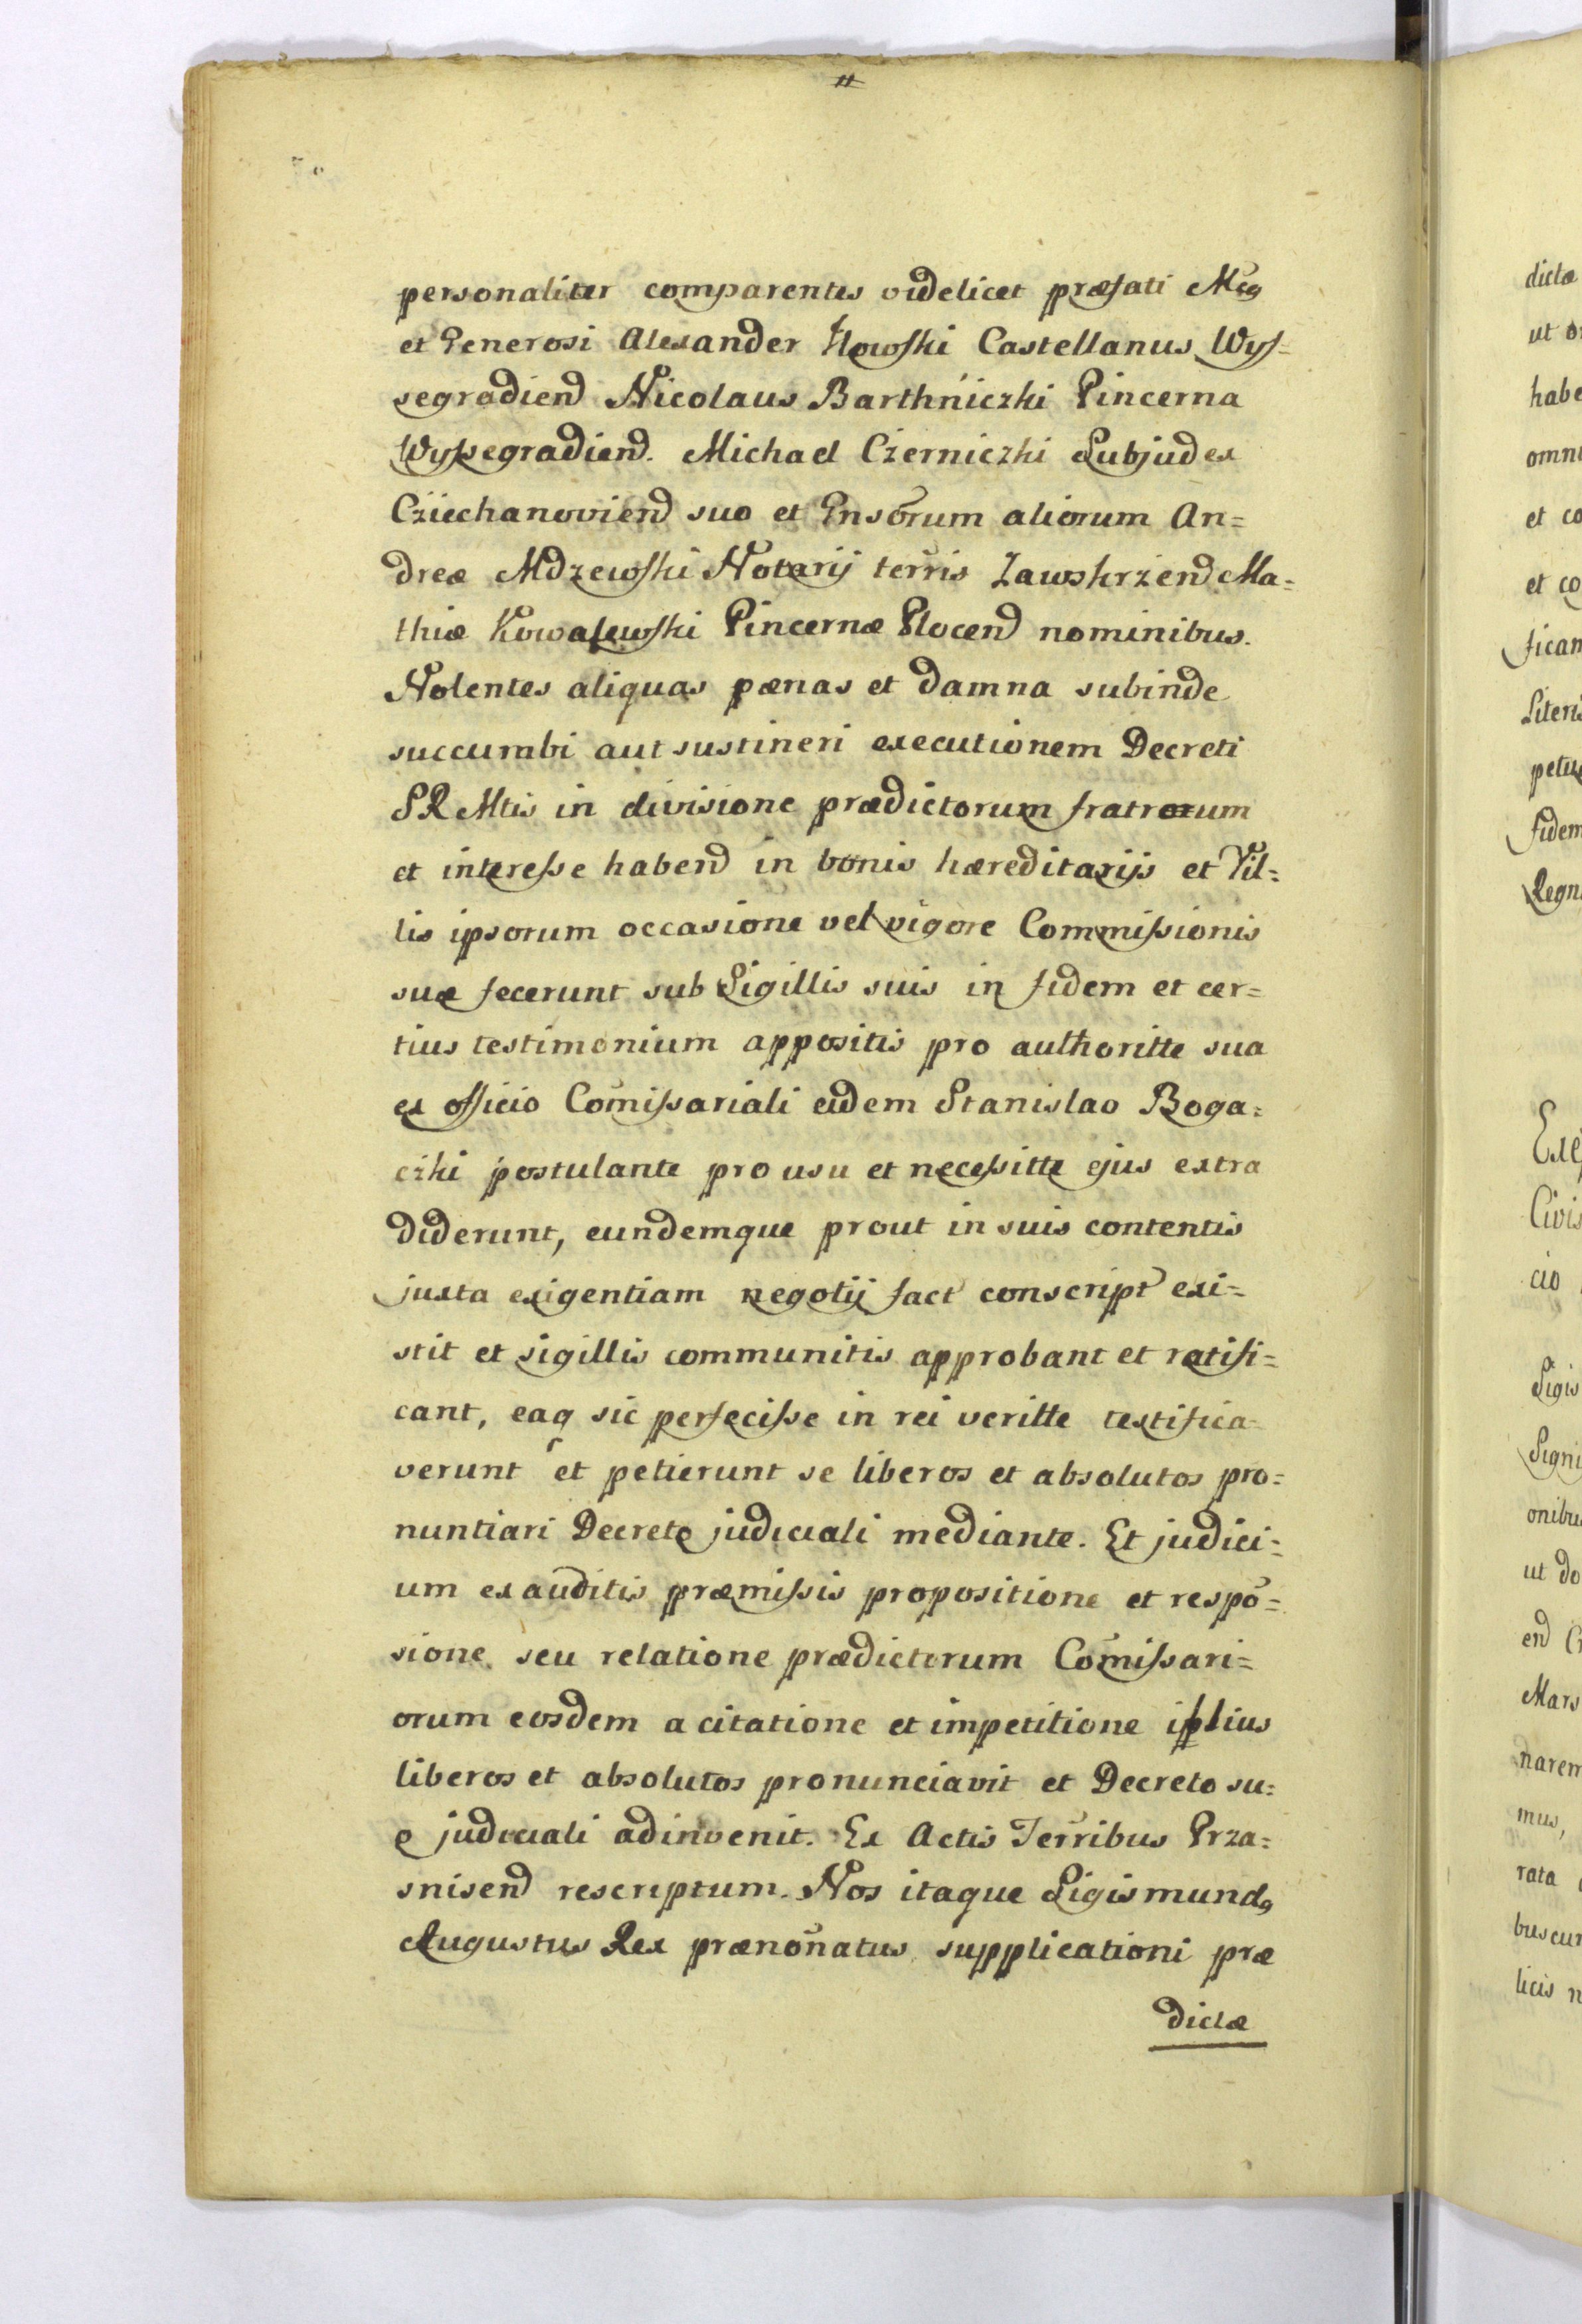 personaliter comparentes videlicet præfati Mcg
et Generosi Alexander Ilowski Castellanus Wys=
segradien̄ Nicolaus Barthniczki Pincerna
Wyssegradien̄. Michael Czerniczki Subjudex
Cziechanovien̄ suo et Gnsōrum aliorum An=
dreæ Mdzewski Notarij terr̄is Zawskrzen̄ Ma=
thiæ Kowalewski Pincernæ Plocen̄ nominibus.
Nolentes aliquas pænas et damna subinde
succumbi aut sustineri executionem Decreti
SRMtis in divisione prædictorum fratrorum
et interesse haben̄ in bonis hæreditarijs et Vil=
lis ipsorum occasione vel vigore Commissionis
suæ fecerunt sub Sigillis suis in fidem et cer=
tius testimonium appositis pro authoritte sua
ex officio Com̄issariali eidem Stanislao Boga=
czki postulante pro usu et necessitte ejus extra
diderunt, eundemque prout in suis contentis
juxta exigentiam negotij fact̄ conscript̄ exi=
stit et sigillis communitis approbant et ratifi=
cant, eaq sic perfecisse in rei veritte testifica=
verunt et petierunt se liberos et absolutos pro=
nuntiari Decreto judiciali mediante. Et judici=
um ex auditis præmissis propositione et respō=
sione seu relatione prædictorum Com̄issari=
orum eosdem a citatione et impetitione ipsius
liberos et absolutos pronunciavit et Decreto su=
o judiciali adinvenit. Ex Actis Terr̄ibus Prza=
snisen̄ rescriptum. Nos itaque Sigismundq
Augustus Rex prænōnatus supplicationi præ
dictæ
dictæ
ut
habe
omni
et co
et co
fican
Literis
petu
fidem
Regn
Exe
Civis
cio
Sigis
Signi
onibu
ut do
en̄
Mars
narem
mus,
rata
buscun
licis